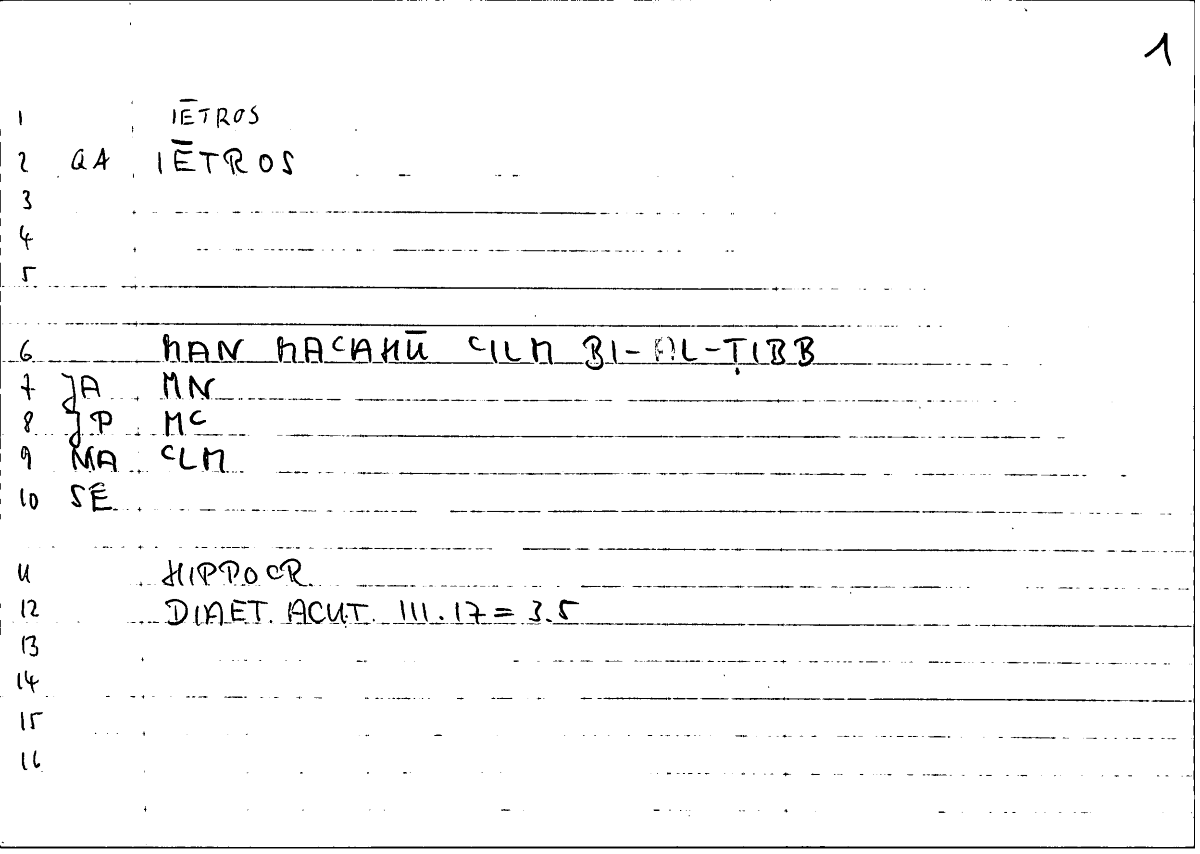 1
1 IĒTROS
2 QA IĒTROS
3
4
5
6 MAN MAʿAHŪ ʿILM BI-AL-ṬIBB
7 JA MN
8 JP Mʿ
9 MA ʿLM
10 SE
11 HIPPOCR.
12 DIAET. ACUT. III.17 = 3.5
13
14
15
16